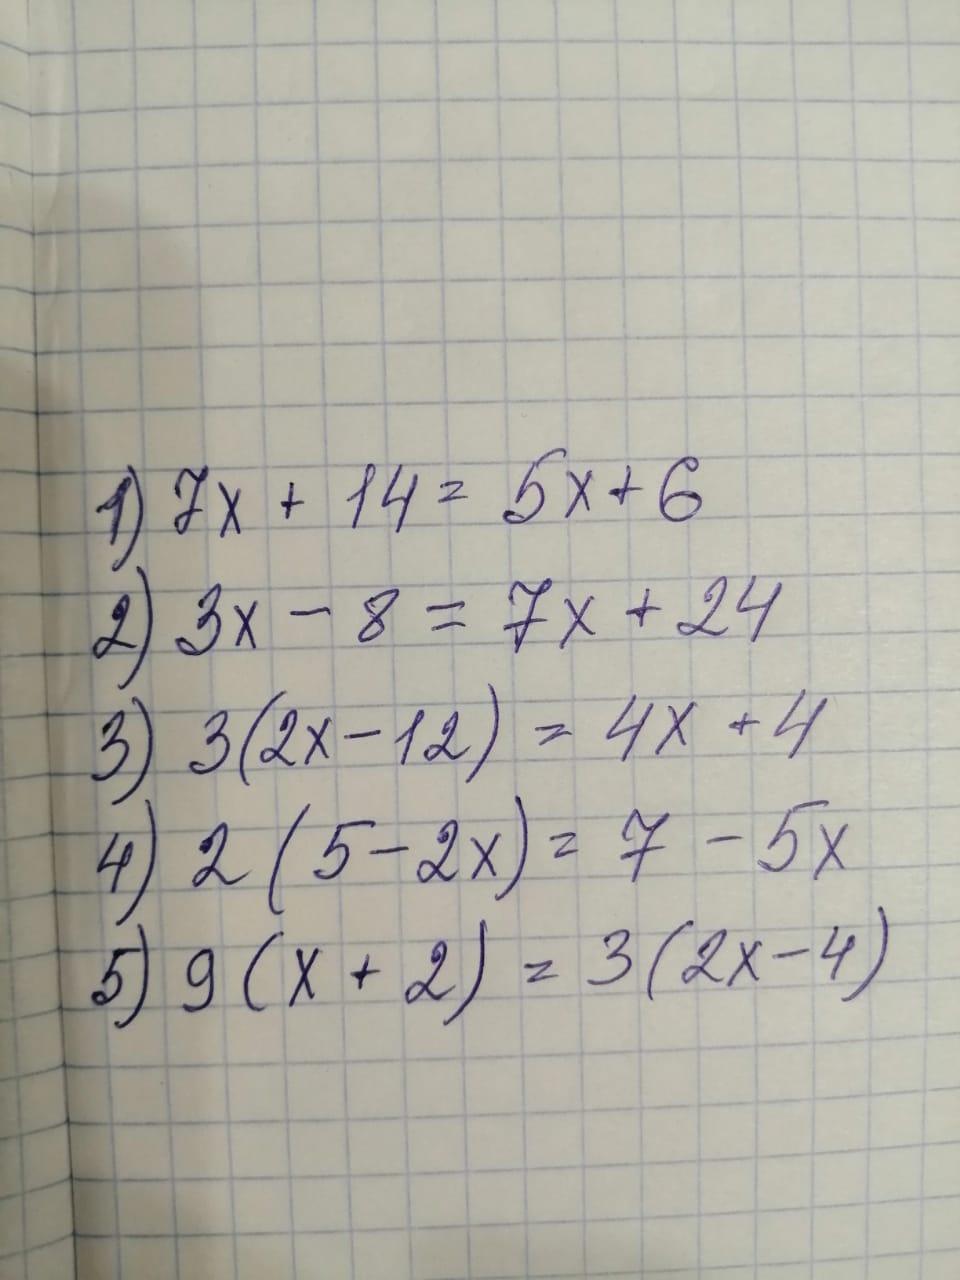 1) 7x + 14 = 5x + 6
2) 3x - 8 = 7x + 24
3) 3(2x - 12) = 4x + 4
4) 2(5 - 2x) = 7 - 5x
5) 9(x + 2) = 3(2x - 4)